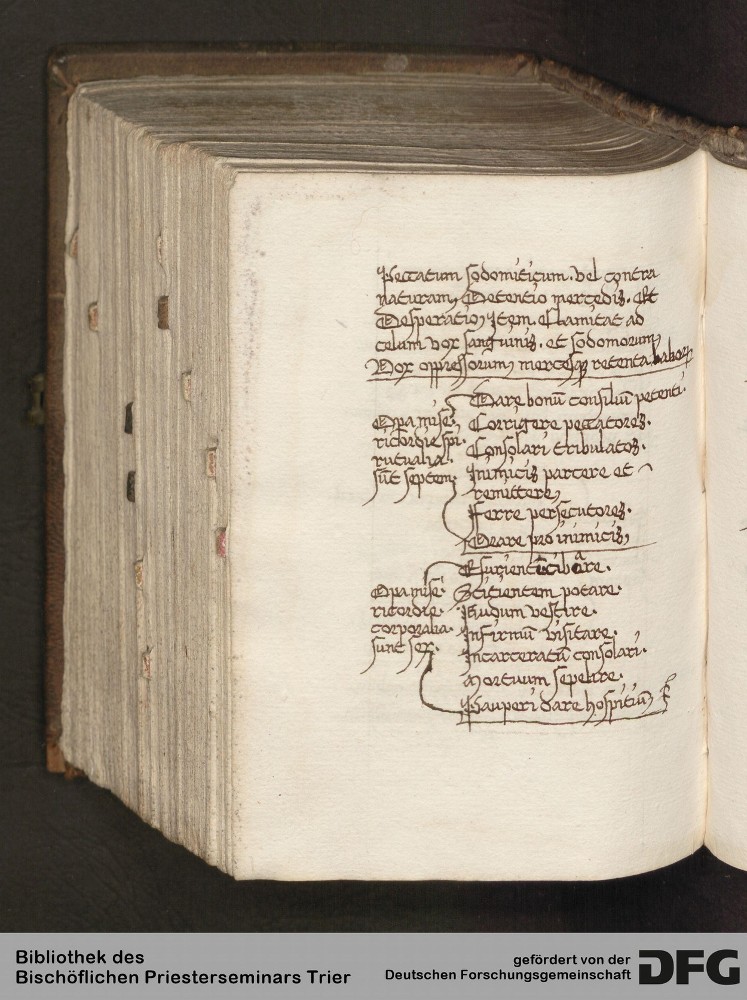 Peccatum sodomiticum. vel contra
naturam, Detentio mercedis. Et
Desperatio, Item. Clamitat ad
celum vox sanguinis. et sodomorum,
Vox oppressorum, mercesque retenta labor
Dare bonū consiliū petenti.
Opa mise
ricordie spi
ritualia.
sūt septem,
Corrigere peccatores.
Consolari tribulatos.
Inimicis parcere et
remittere,
Ferre persecutores.
Orare pro inimicis,
Esurientē cibare.
Opa mise
ricordie.
corporalia.
sunt sex.
Scitientem potare.
Nudum vestire.
Infirmū visitare.
Incarceratū consolari.
Mortuum sepelire.
Pauperi dare hospitiū,
Bibliothek des
Bischöflichen Priesterseminars Trier
gefördert von der
Deutschen Forschungsgemeinschaft
DFG